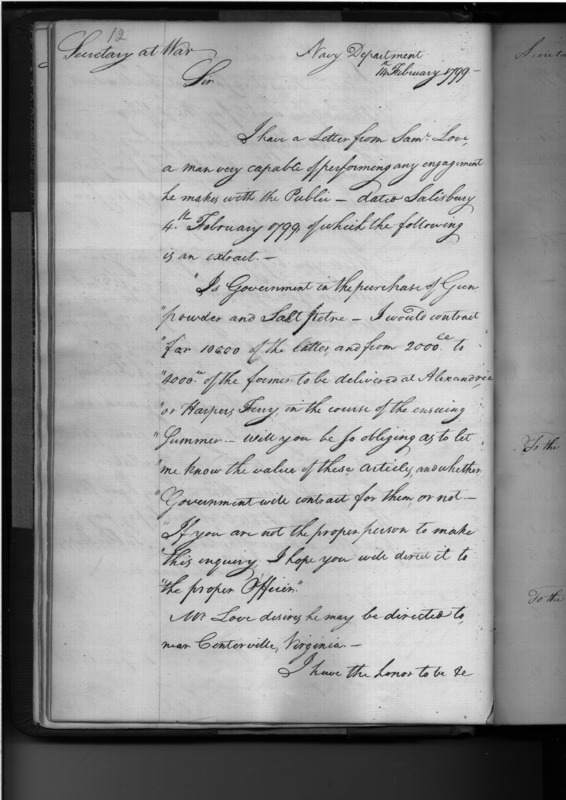 12
Secretary at War
Navy Department
14th February 1799 -
Sir
I have a Letter from Saml. Love,
a man very capable of performing any engagement
he makes with the Public - dated Salisbury
4th February 1799, of which the following
is an extract. -
"Is Government in the purchase of Gun
"powder and Salt Petre - I would contract
"for 10000 of the latter, and from 2000 to
"4000 of the former to be delivered at Alexandria
"or Harpers Ferry, in the course of the ensuing
"Summer - will you be so obliging as to let
"me know the value of these articles, and whether
"Government will contract for them, or not -
"If you are not the proper person to make
"this inquiry, I hope you will direct it to
"the proper Officer."
Mr Love desires he may be directed to
near Centerville, Virginia. -
I have the honor to be &c
Secreta
To the
To the